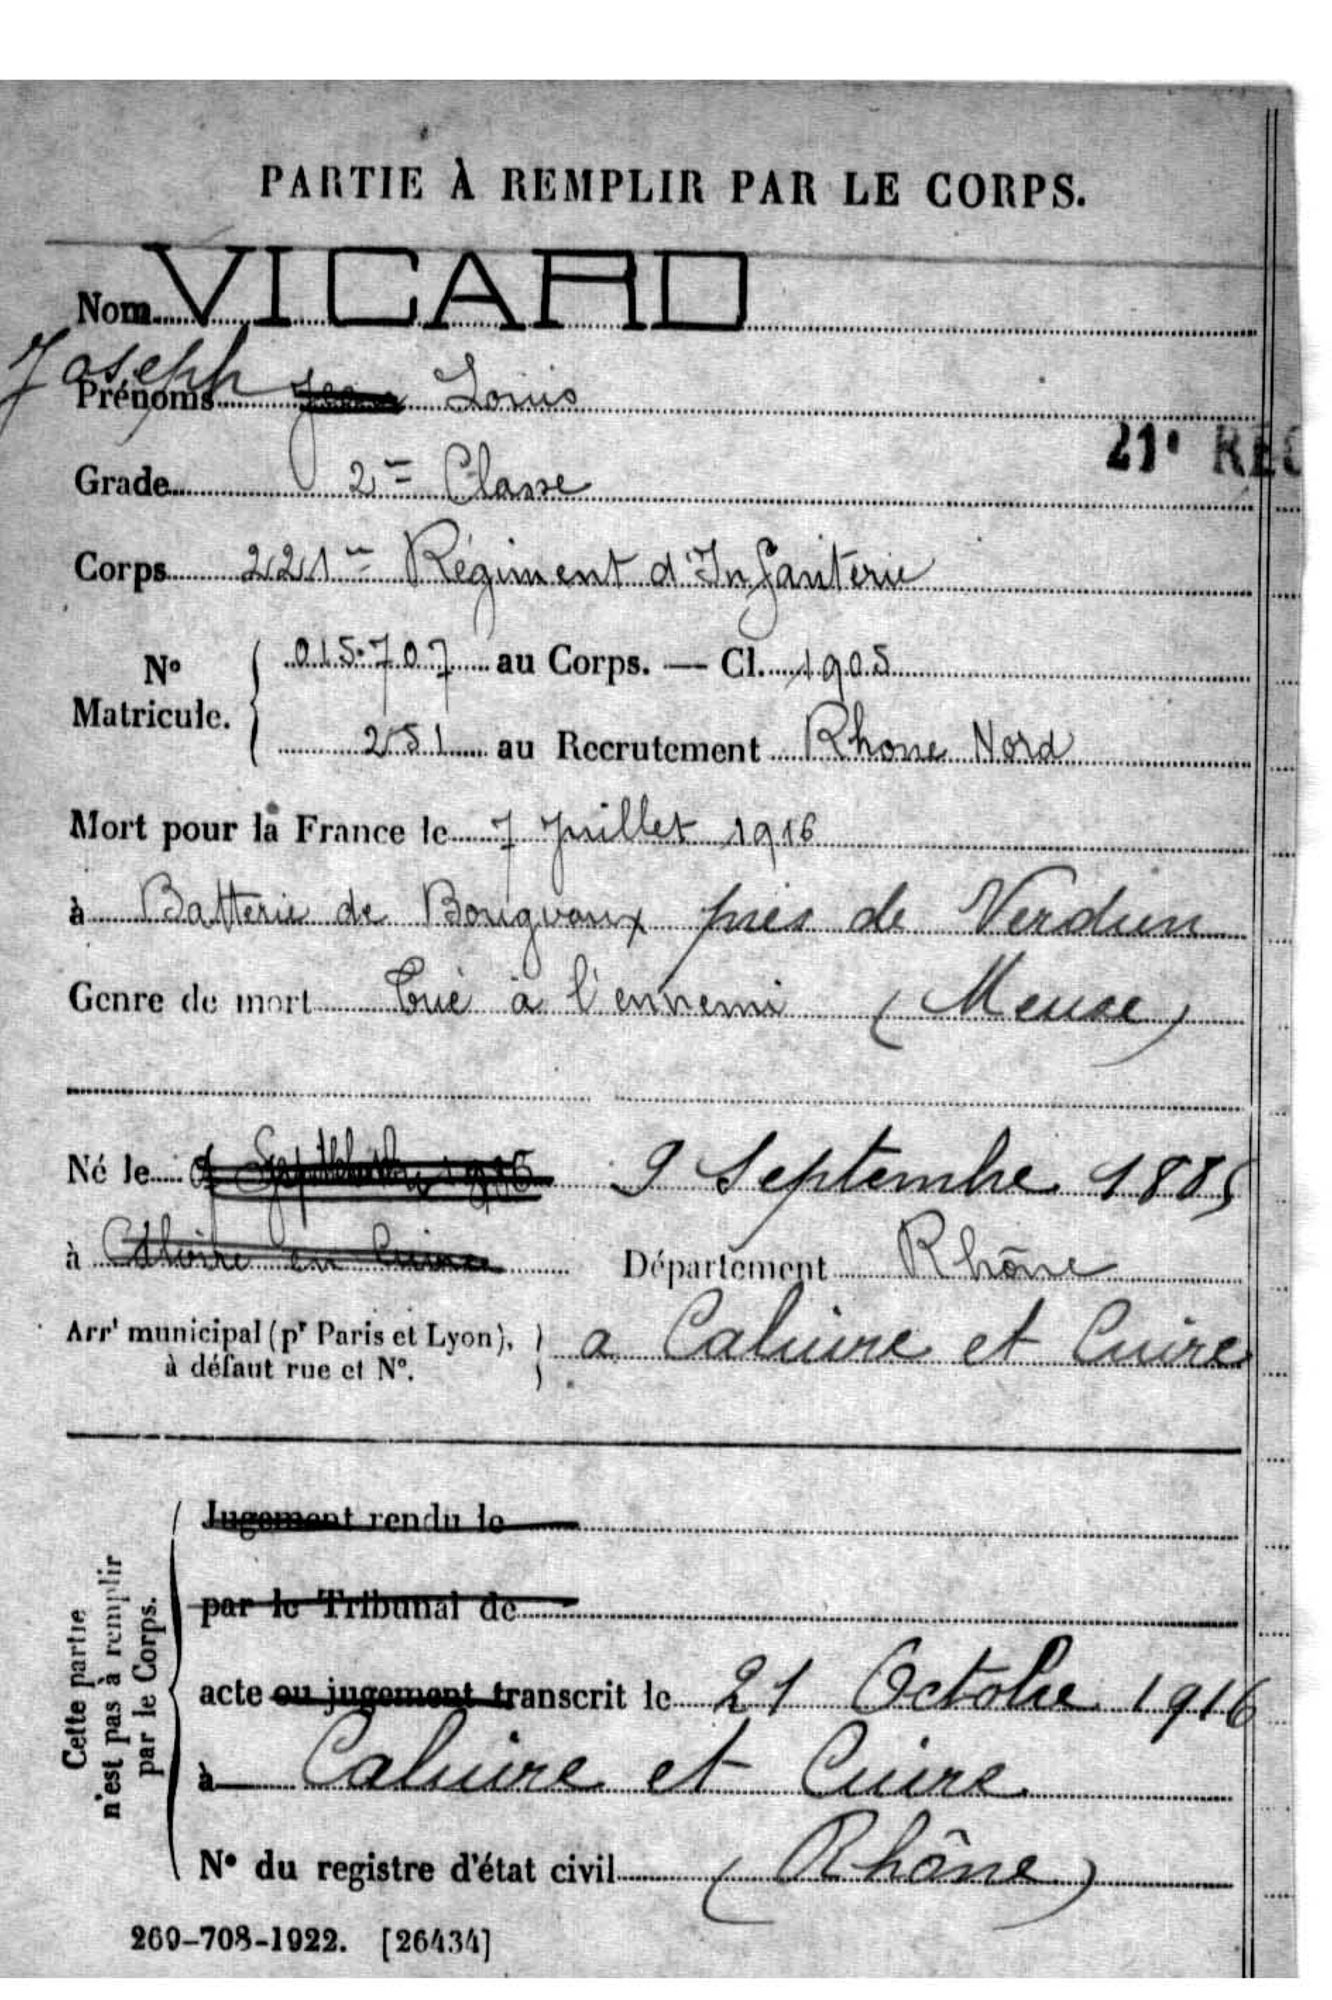 PARTIE À REMPLIR PAR LE CORPS.
Nom VICARD
Joseph
Prénoms Louis
21e RE
Grade 2me Classe
Corps 221me Régiment d'Infanterie
No Matricule. 015.707 au Corps. — Cl. 1905
251 au Recrutement Rhone Nord
Mort pour la France le 7 Juillet 1916
à Batterie de Bourgvaux près de Verdun
Genre de mort Tué à l'ennemi (Meuse)
Né le 9 Septembre 1885
à Département Rhône
Arrt municipal (pr Paris et Lyon), à défaut rue et No. a Caluire et Cuire
Cette partie n'est pas à remplir par le Corps.
Jugement rendu le
par le Tribunal de
acte ou jugement transcrit le 21 Octobre 1916
à Caluire et Cuire
No du registre d'état civil (Rhône)
269-708-1922. [26434]